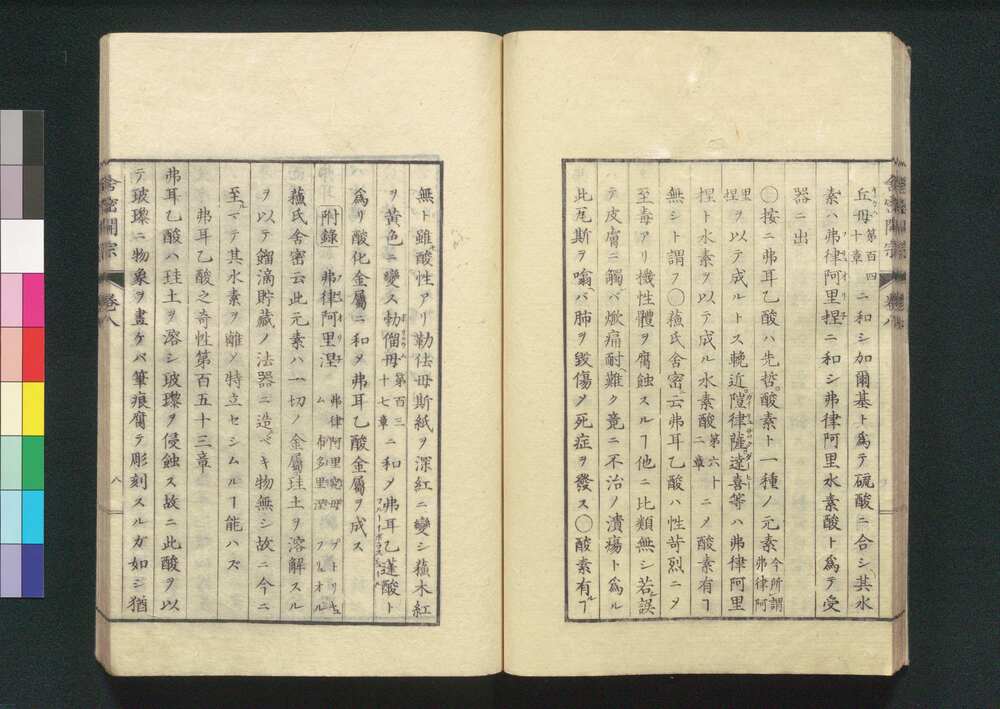 丘母第百四十章ニ和シ加爾基ト爲テ硫酸ニ合シ其水
素ハ弗律阿里捏ニ和シ弗律阿里水素酸ト爲テ受
器ニ出
〇按ニ弗耳乙酸ハ先哲酸素ト一種ノ元素今所謂弗律阿
里捏ヲ以テ成ルトス輓近愷律薩達喜等ハ弗律阿里
捏ト水素ヲ以テ成ル水素酸第六十二章ニメ酸素有ヿ
無シト謂フ〇蘓氏舍密云弗耳乙酸ハ性苛烈ニメ
至毒アリ機性體ヲ腐蝕スルヿ他ニ比類無シ若誤
テ皮膚ニ觸バ燉痛耐難ク竟ニ不治ノ潰瘍ト爲ル
此瓦斯ヲ噏バ肺ヲ毀傷メ死症ヲ發ス〇酸素有ヿ
舍密開宗 巻八
無ト雖酸性アリ勒佉母斯紙ヲ深紅ニ變シ蘓木紅
ヲ黄色ニ變ス勃僴母第百三十七章ニ和メ弗耳乙蓬酸ト
爲リ酸化金屬ニ和メ弗耳乙酸金屬ヲ成ス
附録 弗律阿里涅 弗律阿里究母
蘓氏舍密云此元素ハ一切ノ金屬珪土ヲ溶解スル
ヲ以テ餾滴貯藏ノ法器ニ造ベキ物無シ故ニ今ニ
至マテ其水素ヲ離メ特立セシムルヿ能ハズ
弗耳乙酸之奇性第百五十三章
弗耳乙酸ハ珪土ヲ溶シ玻瓈ヲ侵蝕ス故ニ此酸ヲ以
テ玻瓈ニ物象ヲ畫ケバ筆痕腐テ彫刻スルガ如シ猶
舍密開宗 巻八 八